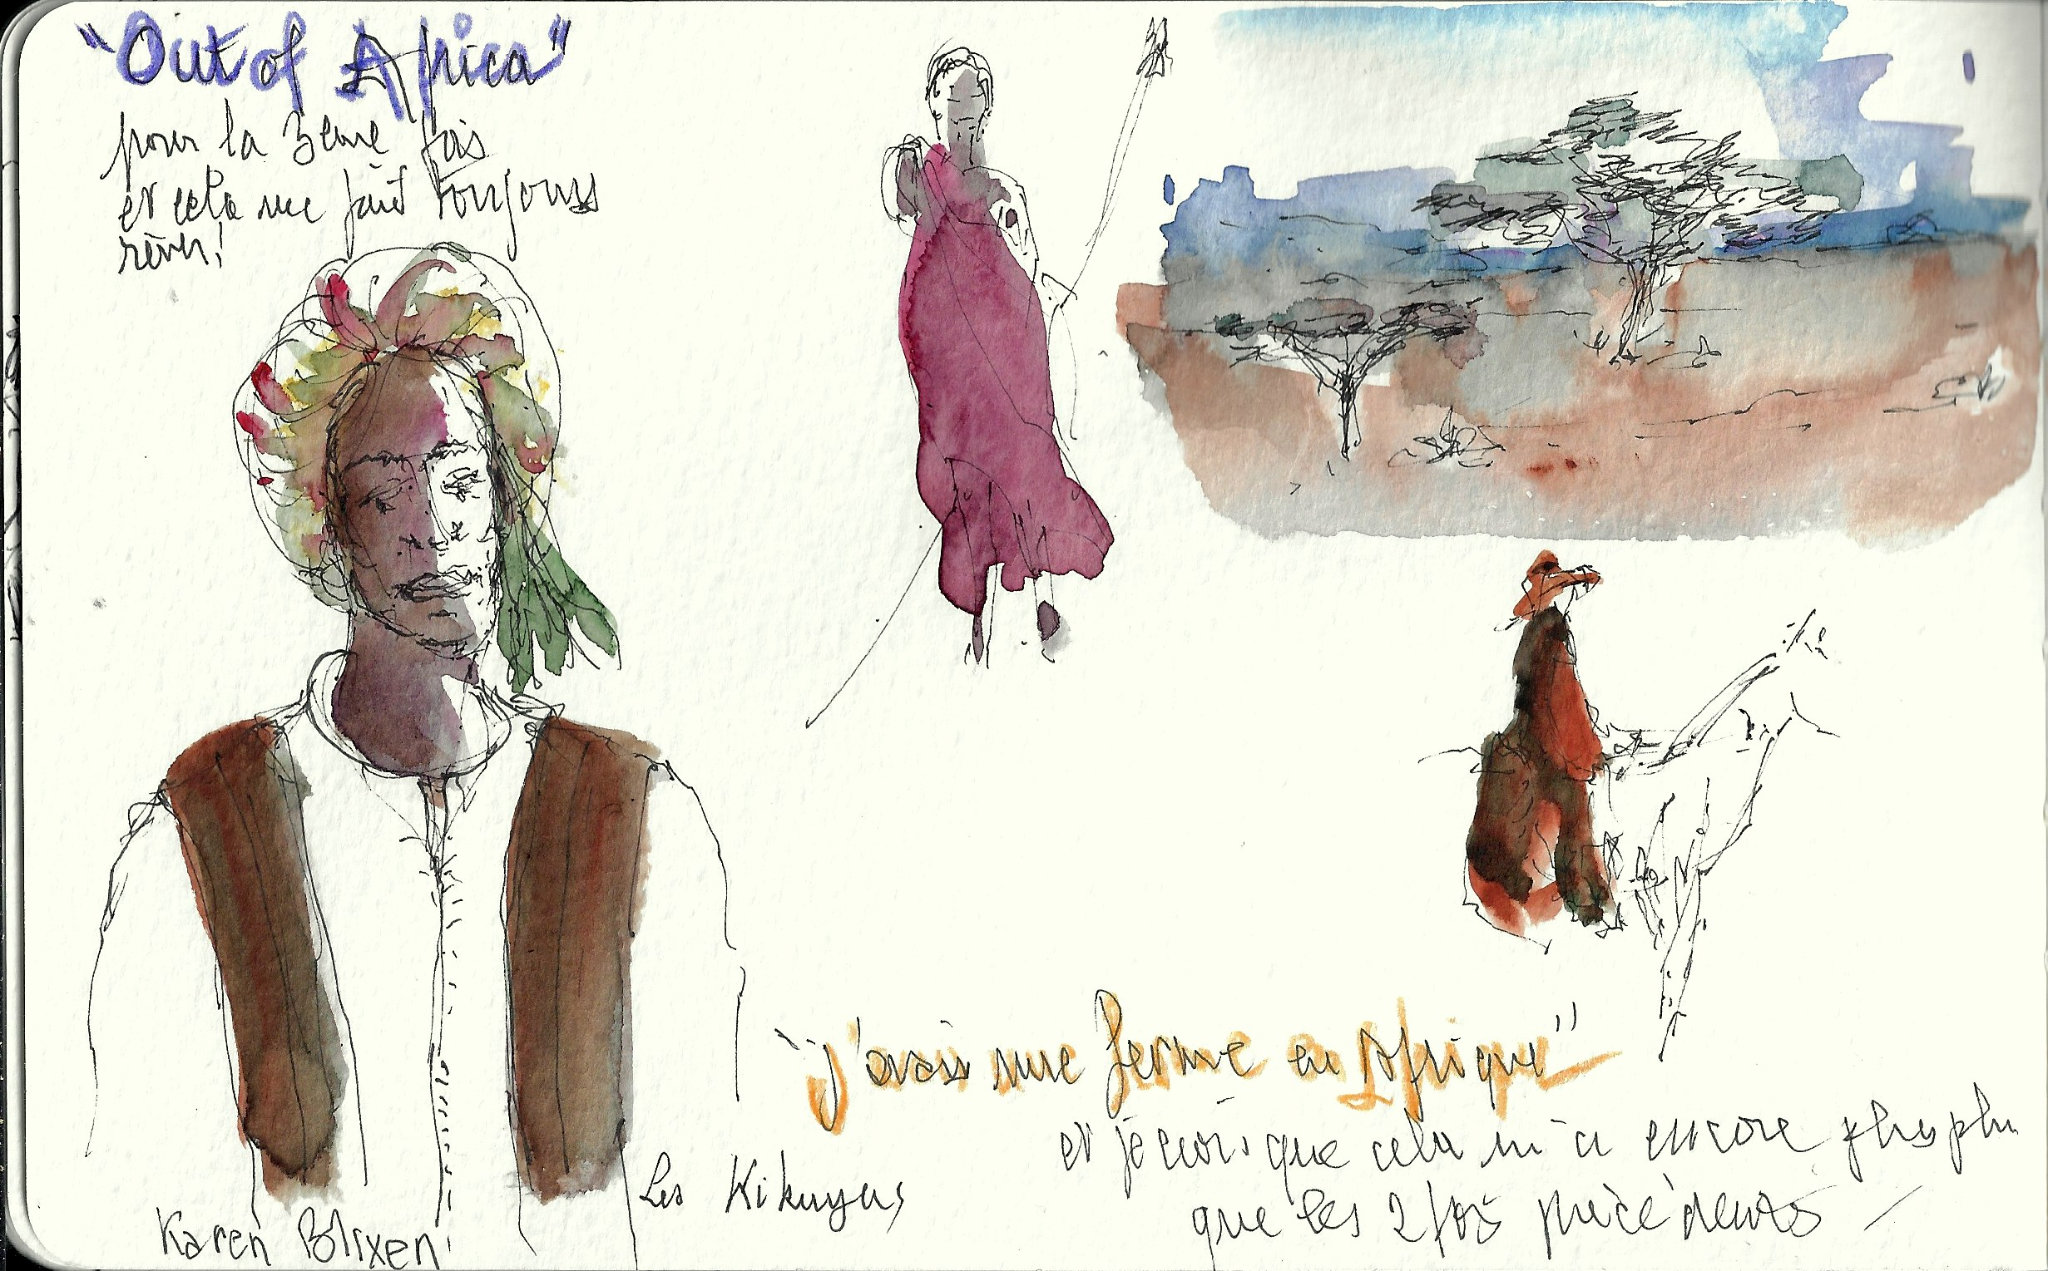 "Out of Africa"
pour la 3ème fois
et cela me fait toujours
rêver!
"j'avais une ferme en Afrique"
et je crois que cela m'a encore plus plu
que les 2 fois précédents
Les Kikuyus
Karen Blixen